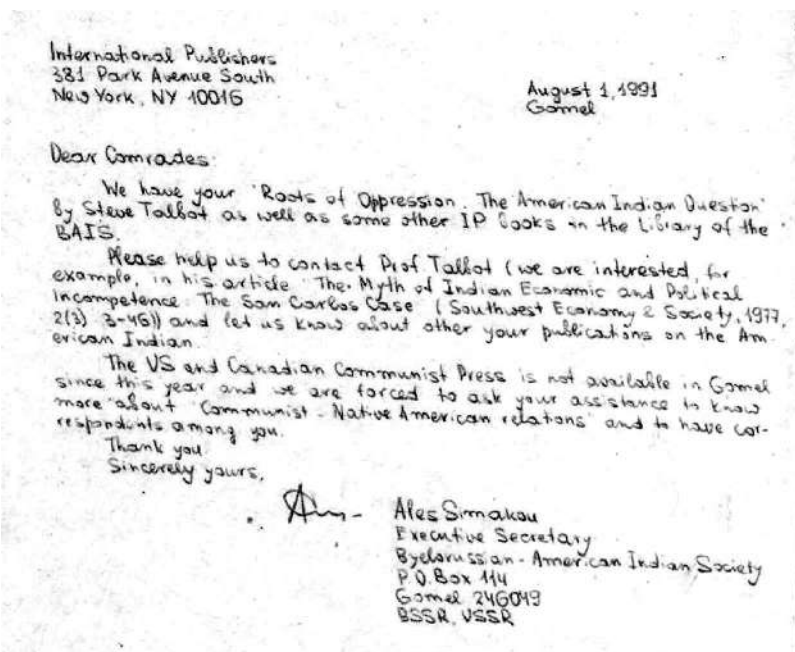 International Publishers
381 Park Avenue South
New York, NY 10016
August 1, 1991
Gomel
Dear Comrades:
We have your "Roots of Oppression. The American Indian Question"
by Steve Talbot as well as some other IP books in the Library of the
BAIS.
Please help us to contact Prof. Talbot (we are interested, for
example, in his article "The Myth of Indian Economic and Political
Incompetence: The San Carlos Case" (Southwest Economy & Society, 1977,
2(3) 3-46)) and let us know about other your publications on the Am-
erican Indian.
The US and Canadian Communist Press is not available in Gomel
since this year and we are forced to ask your assistance to know
more about "Communist - Native American relations" and to have cor-
respondents among you.
Thank you.
Sincerely yours,
Ales Simakou
Executive Secretary
Byelorussian-American Indian Society
P.O. Box 114
Gomel 246049
BSSR, USSR